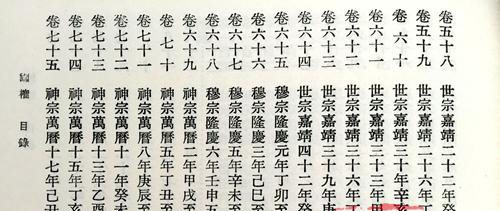 卷五十八 世宗嘉靖二十二年癸
卷五十九 世宗嘉靖二十六年丁
卷六十 世宗嘉靖三十年辛亥
卷六十一 世宗嘉靖三十三年甲
卷六十二 世宗嘉靖三十六年丁
卷六十三 世宗嘉靖三十九年庚
卷六十四 世宗嘉靖四十二年癸
卷六十五 穆宗隆慶元年丁卯至
卷六十六 穆宗隆慶三年己巳至
卷六十七 穆宗隆慶五年辛未至
卷六十八 穆宗隆慶六年壬申五
卷六十九 神宗萬曆二年甲戌至
卷七十 神宗萬曆五年丁丑至
卷七十一 神宗萬曆八年庚辰至
卷七十二 神宗萬曆十一年癸未
卷七十三 神宗萬曆十三年乙酉
卷七十四 神宗萬曆十五年丁亥
卷七十五 神宗萬曆十七年己丑
國榷 目錄